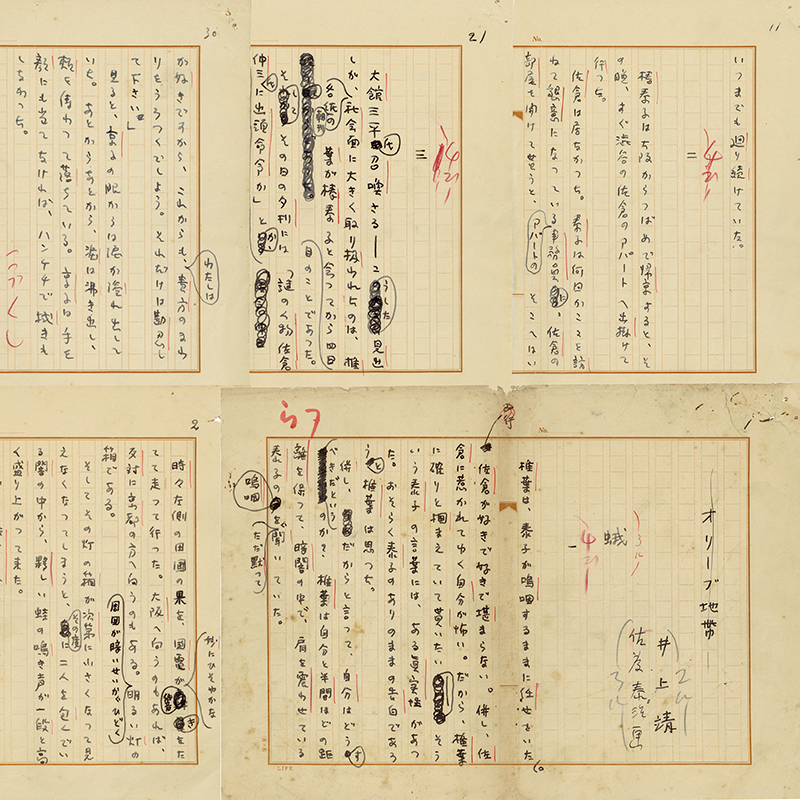 30
かなきですから、これからも、貴方のまわ
わたしは
りをうろつくでしょう。それだけは勘忍し
て下さい。」
見ると、泰子の眼からは涙が溢れ出して
いた。あとからあとから、涙は沸き出し、
頬を伝わって落ちている。泰子は手を
顔にも当てなければ、ハンケチで拭きも
しなかった。
つづく
21
三
大館三平氏召喚さる――こうした見出
しが、社会面に大きく取り扱われたのは、椎
葉が椿泰子と会ってから四日
目のことであった。
各紙の
朝刊
その日の夕刊には「謎の人物佐倉
仲三氏に出頭命令か」と
11
No.
いつまでも廻り続けていた。
二
椿泰子は大阪からつばめで帰京すると、そ
の晩、すぐ渋谷の佐倉のアパートへ出掛けて
行った。
佐倉は居なかった。泰子は何回かここを訪
ねて懇意になっている事務員に、佐倉の
部屋を開けて貰うと、
アパートの
そこへはい
2
時々左側の田圃の果を、国電が
妙にひそやかな
て走って行った。大阪へ向うのもあれば、
反対に京都の方へ向うのもある。明るい灯の
箱である。
周囲が暗いせいかひどく
そしてその灯の箱が次第に小さくなって見
えなくなってしまうと、
その度
に二人を包んでい
る闇の中から、夥しい蛙の鳴き声が一段と高
く盛り上がって来た。
ら7
No.
オリーブ地帯
井上靖
佐藤泰治画
蛾
一
椎葉は、泰子が嗚咽するままに任せていた
佐倉がなきで好きで堪まらない。併し、佐
倉に惹かれてゆく自分が怖い。だから、椎葉
に確りと掴まえていて貰いたい
そう
いう泰子の言葉には、ある真実性があっ
た。おそらく泰子のありのままの告白であろ
うと椎葉は思った。
併し、だからと言って、自分はどうす
べきだというのか?椎葉は自分と半間ほどの距
離を保って、暗闇の中で、肩を震わせている
泰子の
嗚咽
を聞いていた。
ただ黙って
LIFE